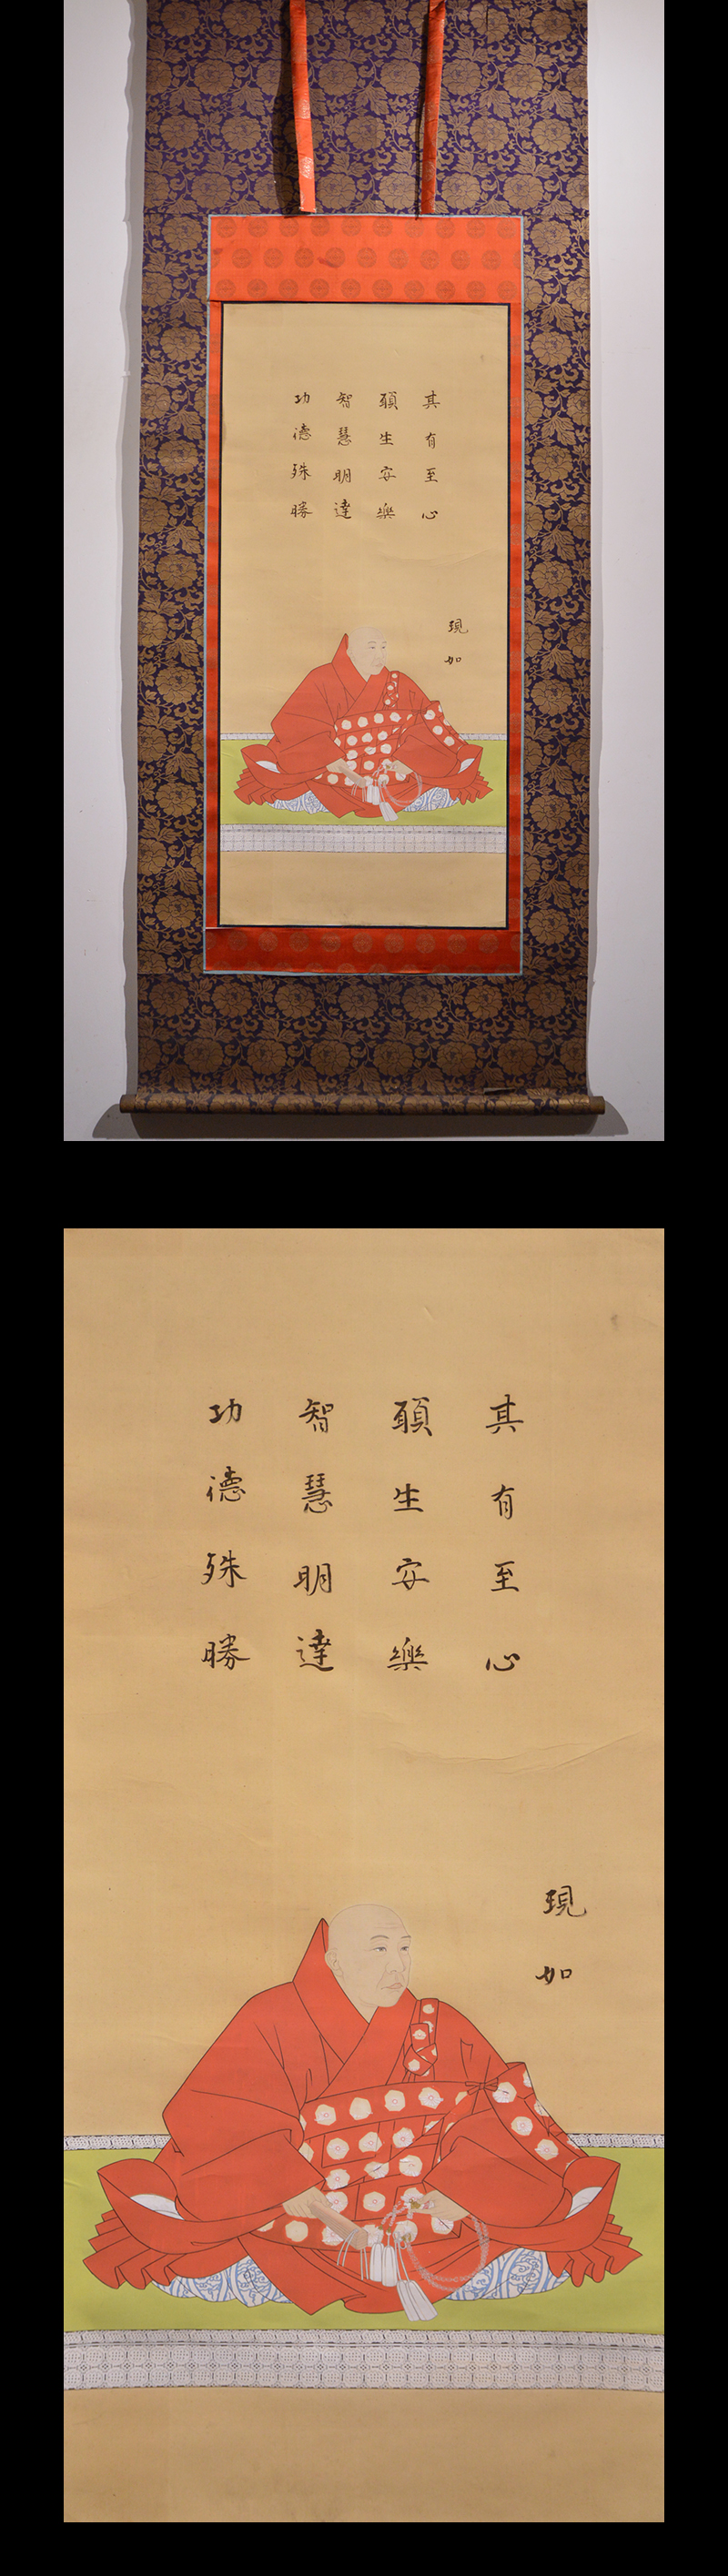 其有至心
願生安樂
智慧明達
功德殊勝
現如
其有至心
願生安樂
智慧明達
功德殊勝
現如